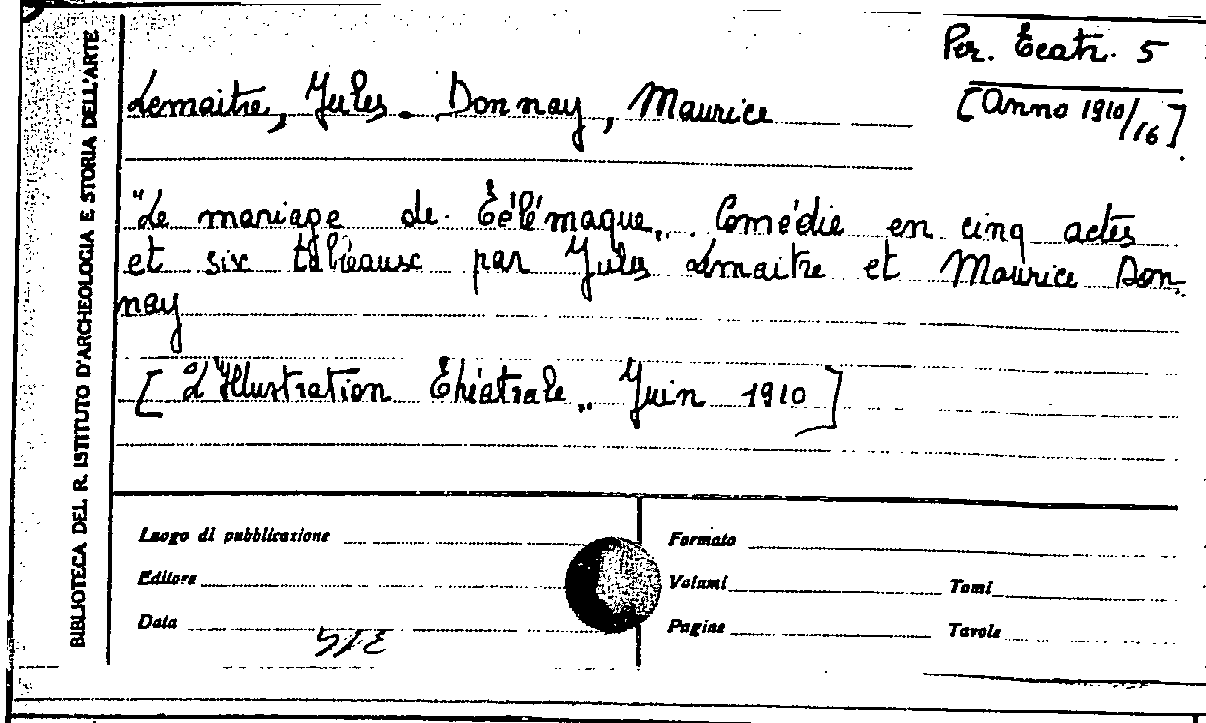 BIBLIOTECA DEL R. ISTITUTO D'ARCHEOLOGIA E STORIA DELL'ARTE
Per. Teatr. 5
[Anno 1910/16].
Lemaitre, Jules. Donnay, Maurice
"Le mariage de Télémaque". Comédie en cinq actes
et six tableaux par Jules Lemaitre et Maurice Don-
nay
["L'Illustration Théâtrale" Juin 1910]
Luogo di pubblicazione
Editore
Data
Formato
Volumi
Tomi
Pagine
Tavole